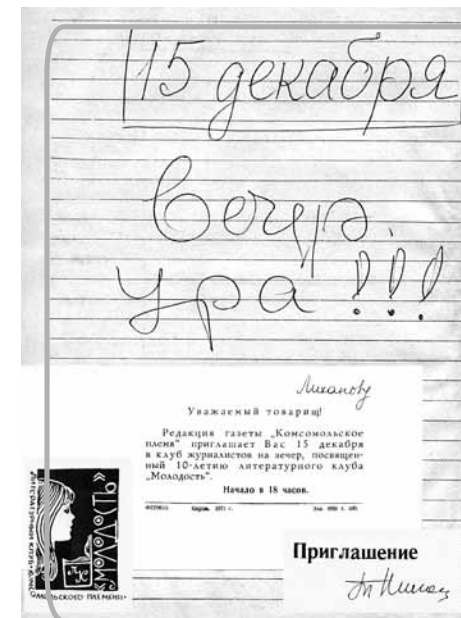 15 декабря
Вечер.
ура!!!
Лиханову
Уважаемый товарищ!
Редакция газеты „Комсомольское
племя" приглашает Вас 15 декабря
в клуб журналистов на вечер, посвящен-
ный 10-летию литературного клуба
„Молодость".
Начало в 18 часов.
Киров. 1971 г.
Зак.
«МОЛОДОСТЬ»
ЛК
Приглашение